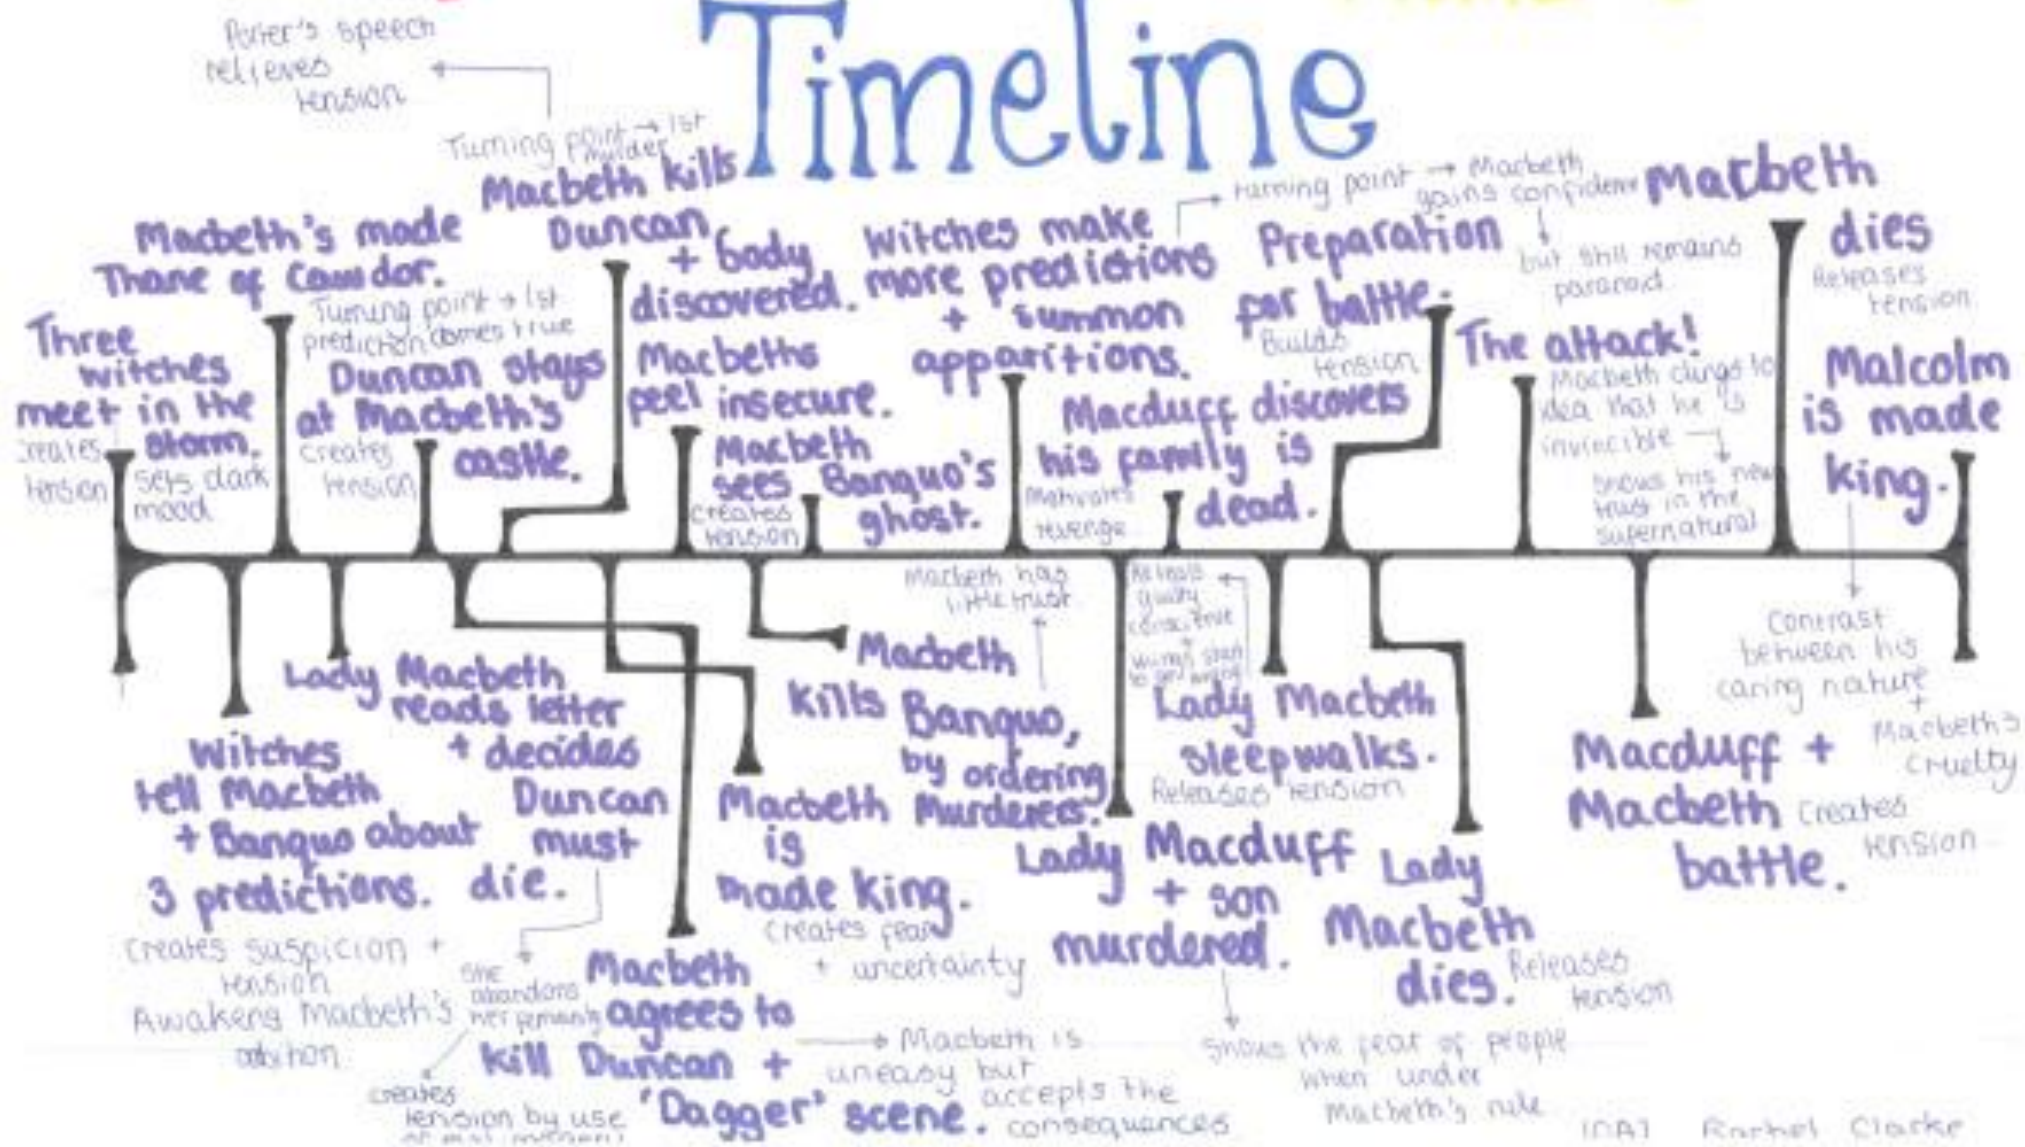 Timeline
Porter's speech
relieves
tension
Turning point → 1st
murder
Macbeth kills
Duncan
+ body
discovered.
Macbeth's made
Thane of Cawdor.
Turning point → 1st
prediction comes true
Three
witches
meet in the
storm.
creates
tension
sets dark
mood
Duncan stays
at Macbeth's
castle.
creates
tension
Macbeths
feel insecure.
Macbeth
sees Banquo's
ghost.
creates
tension
Witches make
more predictions
+ summon
apparitions.
turning point → Macbeth
gains confidence
but still remains
paranoid
Macduff discovers
his family is
dead.
Motivates
revenge
Preparation
for battle.
Builds
tension
The attack!
Macbeth clings to
idea that he is
invincible
shows his new
trust in the
supernatural
Macbeth
dies
Releases
tension
Malcolm
is made
king.
Contrast
between his
caring nature
+
Macbeth's
cruelty
Witches
tell Macbeth
+ Banquo about
3 predictions.
Creates suspicion +
tension
Awakens Macbeth's
Lady Macbeth
reads letter
+ decides
Duncan
must
die.
she
abandons
her
creates
tension by use
Macbeth
agrees to
kill Duncan +
'Dagger' scene.
Macbeth is
uneasy but
accepts the
consequences
Macbeth
is
made king.
creates fear
+ uncertainty
Macbeth
kills Banquo,
by ordering
Murderers.
Macbeth has
little trust
Lady Macduff
+ son
murdered.
shows the fear of people
when under
Macbeth's rule
guilty
Lady Macbeth
sleepwalks.
Releases tension
Lady
Macbeth
dies.
Releases
tension
Macduff +
Macbeth
battle.
Creates
tension
Rachel Clarke